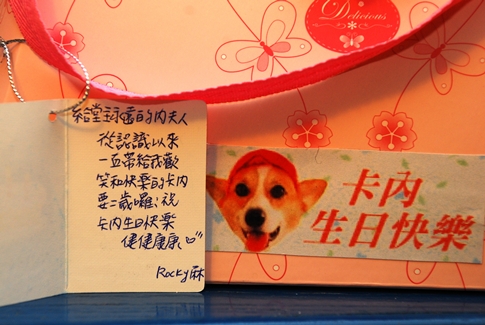 Delicious
給堂球噹的內夫人
從認識以來
一直帶給我歡
笑和快樂的卡內
要三歲囉!祝
卡內生日快樂
健健康康
Rocky麻
卡內
生日快樂